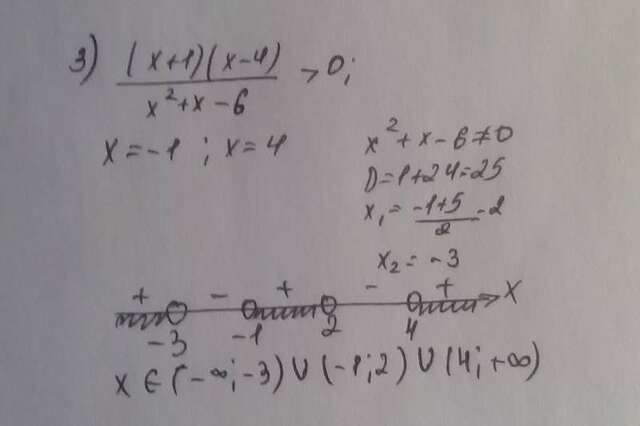 3) (x+1)(x-4) / x²+x-6 > 0;
x = -1 ; x = 4
x²+x-6≠0
D=1+24=25
x₁ = -1+5 / 2 = 2
x₂ = -3
+ - + - + x
-3 -1 2 4
x ∈ (-∞;-3) ∪ (-1;2) ∪ (4;+∞)